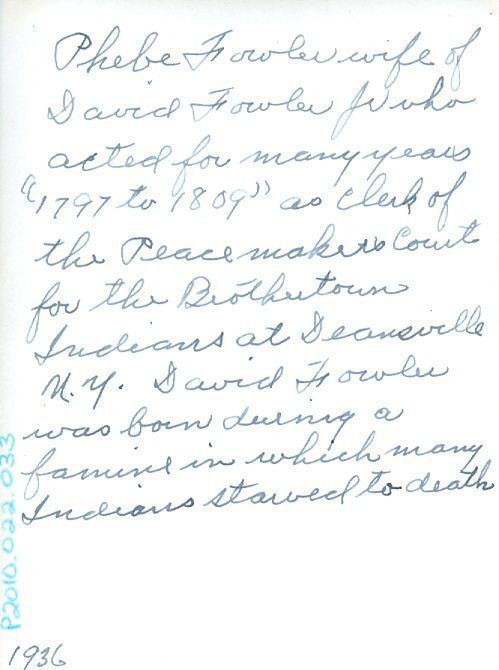 Phebe Fowler wife of
David Fowler Jr who
acted for many years
"1797 to 1809" as Clerk of
the Peacemakers Court
for the Brothertown
Indians at Deansville
N.Y. David Fowler
was born during a
famine in which many
Indians starved to death
P2010.022.033
1936